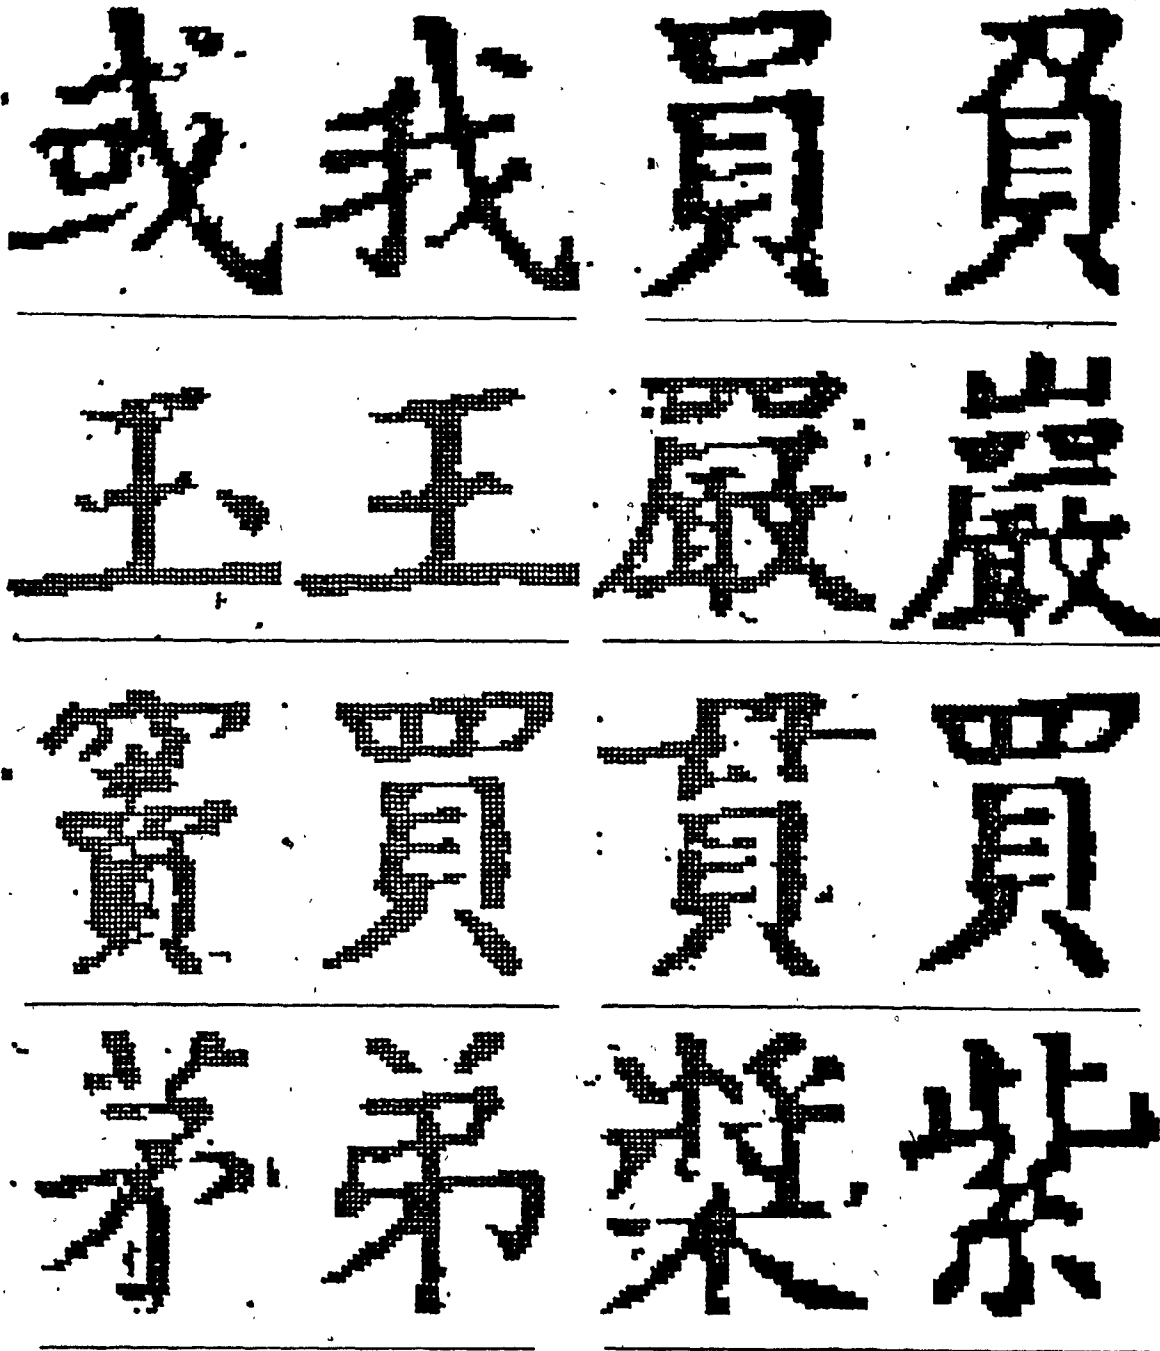 或 我 員 負
玉 王 嚴 巖
竇 買 貫 買
茅 弟 紫